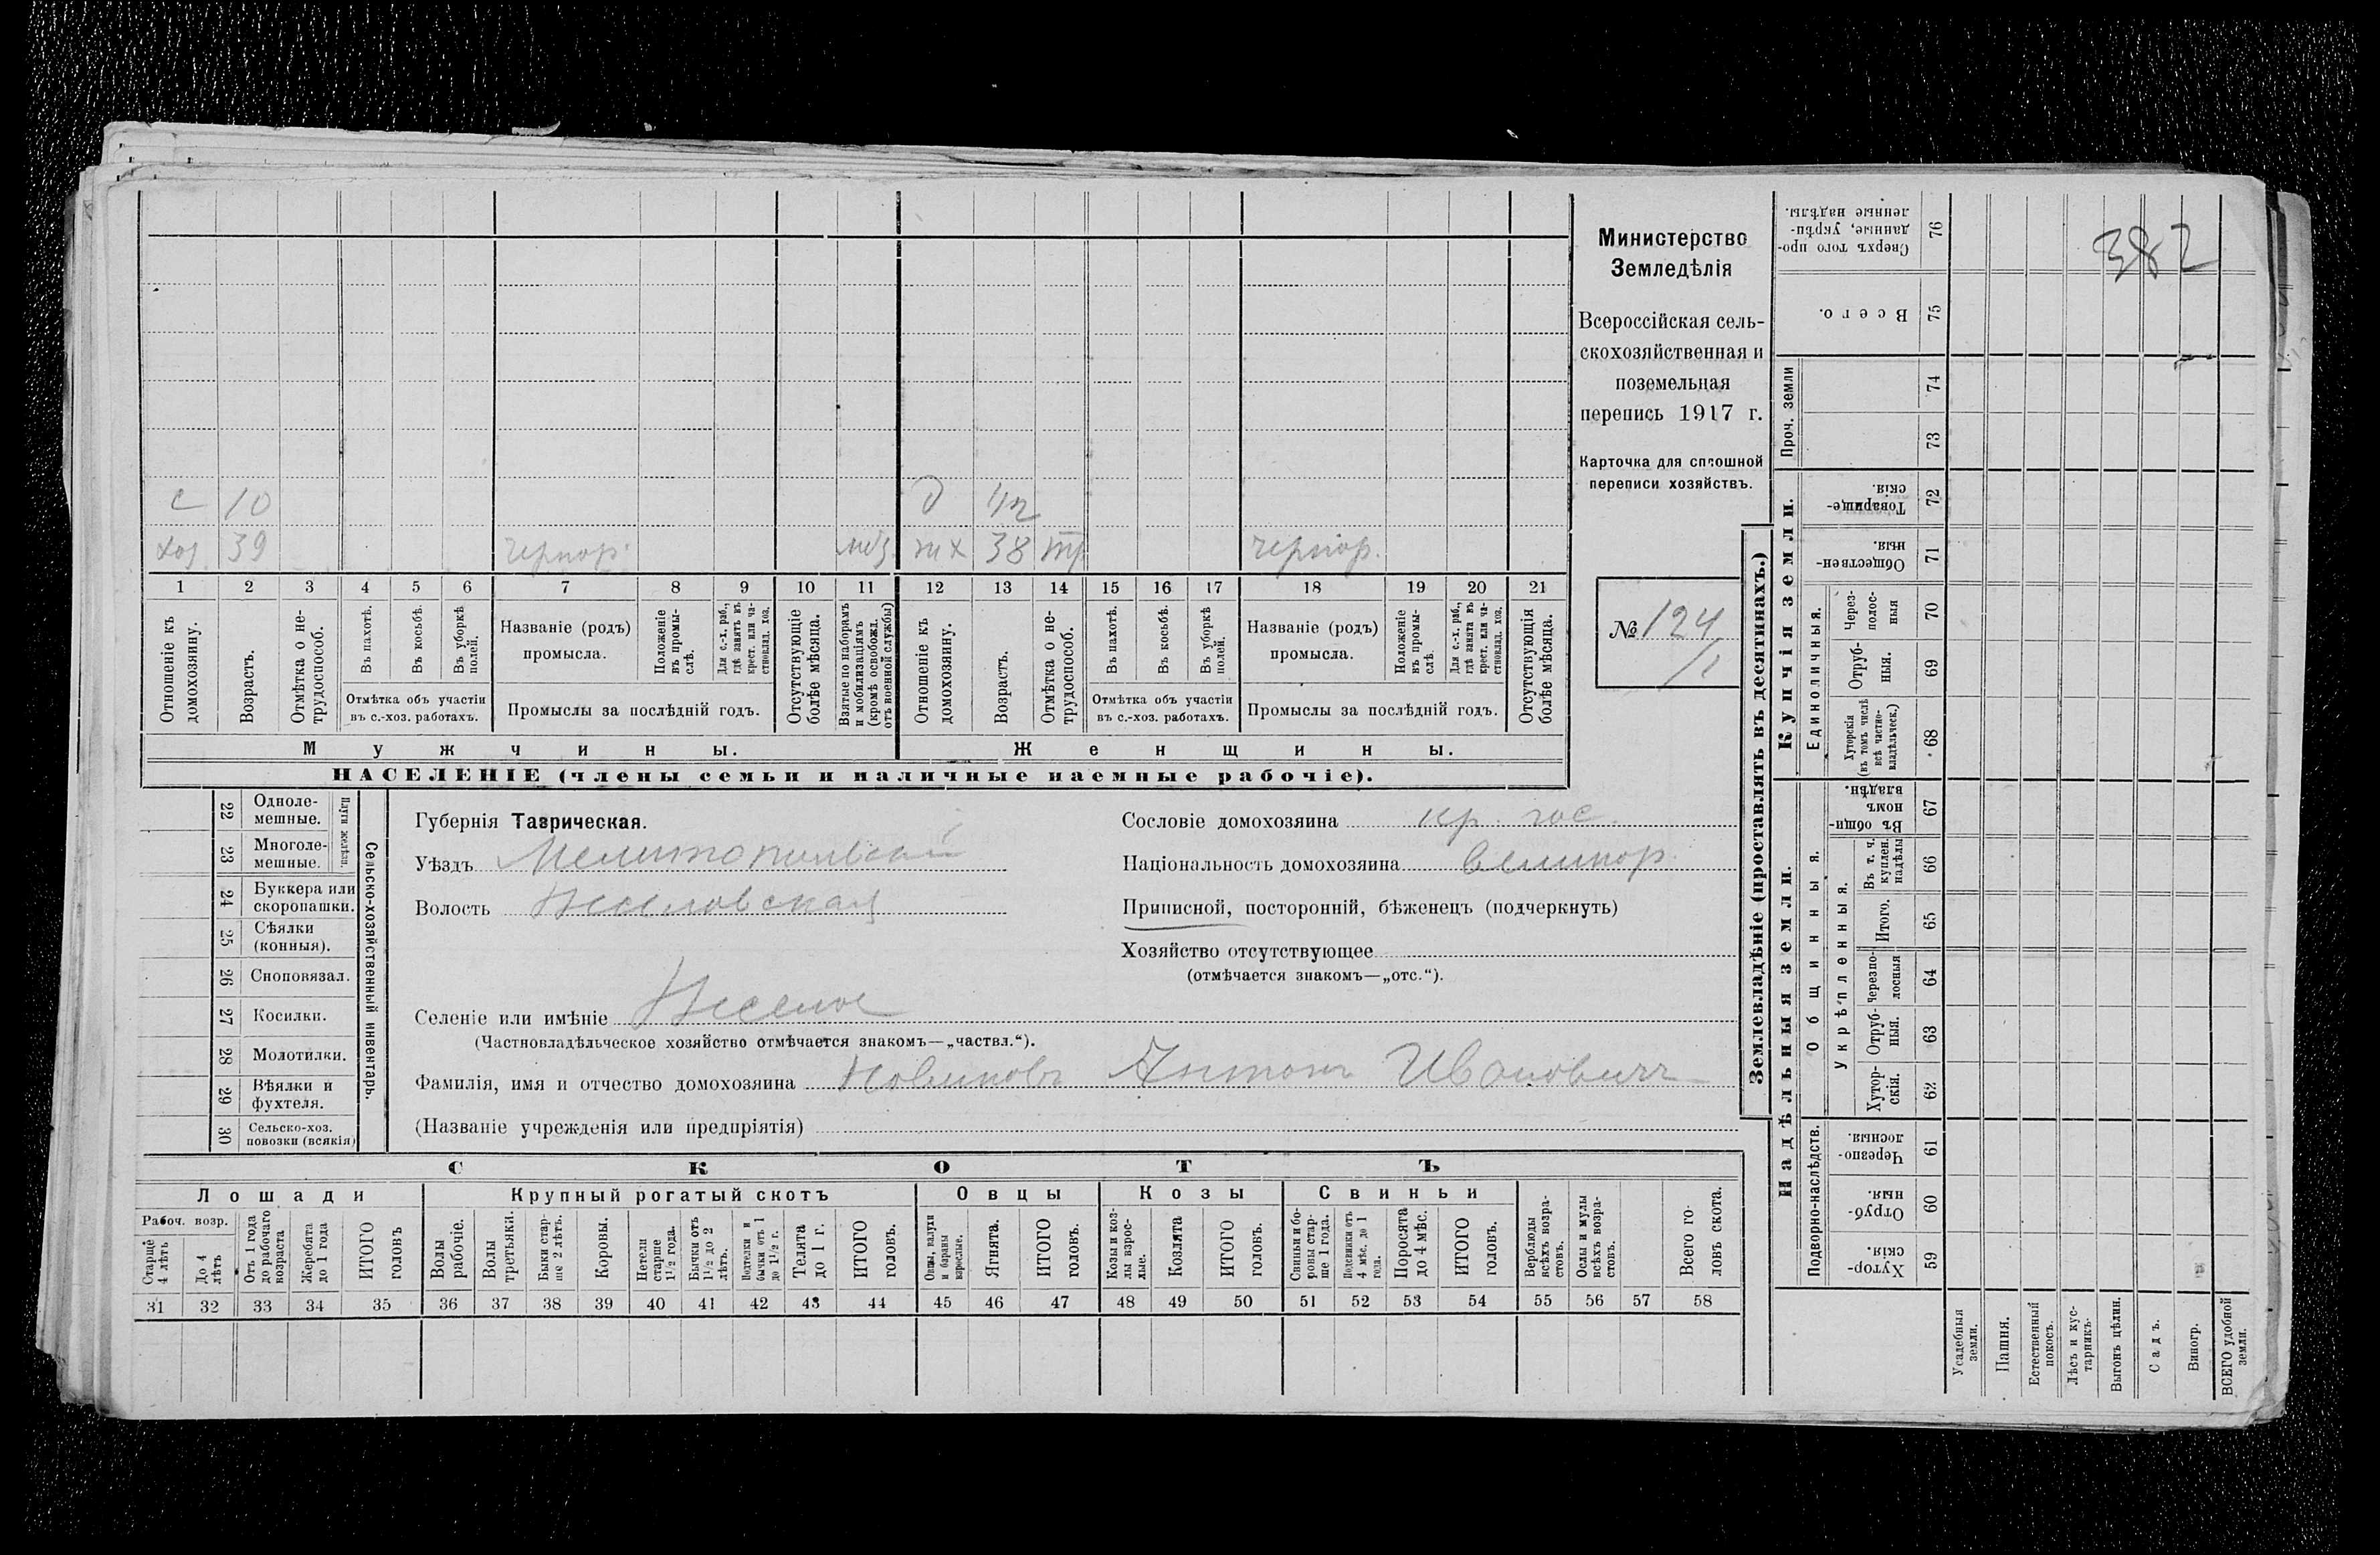 382
Министерство
Земледѣлія
Всероссійская сель-
скохозяйственная и
поземельная
перепись 1917 г.
Карточка для сплошной
переписи хозяйствъ.
№ 124/1
с 10 д 1/12
хоз 39 чернор. моб. ж х 38 чернор.
1 2 3 4 5 6 7 8 9 10 11 12 13 14 15 16 17 18 19 20 21
Отношеніе къ домохозяину.
Возрастъ.
Отмѣтка о не-трудоспособ.
Въ пахотѣ.
Въ косьбѣ.
Въ уборкѣ полей.
Отмѣтка объ участіи
въ с.-хоз. работахъ.
Названіе (родъ)
промысла.
Положеніе въ промы-слѣ.
Для с.-х. раб., гдѣ занятъ въ крест. или ча-стновлад. хоз.
Промыслы за послѣдній годъ.
Отсутствующіе болѣе мѣсяца.
Взятые по наборамъ и мобилизаціямъ (кромѣ освобожд. отъ военной службы)
Отношеніе къ домохозяину.
Возрастъ.
Отмѣтка о не-трудоспособ.
Въ пахотѣ.
Въ косьбѣ.
Въ уборкѣ полей.
Отмѣтка объ участіи
въ с.-хоз. работахъ.
Названіе (родъ)
промысла.
Положеніе въ промы-слѣ.
Для с.-х. раб., гдѣ занята въ крест. или ча-стновлад. хоз.
Промыслы за послѣдній годъ.
Отсутствующія болѣе мѣсяца.
Мужчины. Женщины.
НАСЕЛЕНІЕ (члены семьи и наличные наемные рабочіе).
Сельско-хозяйственный инвентарь.
Плуги желѣзн.
22 Одноле-мешные.
23 Многоле-мешные.
24 Буккера или скоропашки.
25 Сѣялки (конныя).
26 Сноповязал.
27 Косилки.
28 Молотилки.
29 Вѣялки и фухтеля.
30 Сельско-хоз. повозки (всякія)
Губернія Таврическая.
Уѣздъ Мелитопольскій
Волость Веселовская
Селеніе или имѣніе Веселое
(Частновладѣльческое хозяйство отмѣчается знакомъ—„частвл.“).
Фамилія, имя и отчество домохозяина Новиковъ Антонъ Ивановичъ
(Названіе учрежденія или предпріятія)
Сословіе домохозяина кр. гос.
Національность домохозяина великор.
Приписной, посторонній, бѣженецъ (подчеркнуть)
Хозяйство отсутствующее
(отмѣчается знакомъ—„отс.“).
СКОТЪ
Лошади Крупный рогатый скотъ Овцы Козы Свиньи
Рабоч. возр.
Старше 4 лѣтъ
До 4 лѣтъ
Отъ 1 года до рабочаго возраста
Жеребята до 1 года
ИТОГО головъ
Волы рабочіе.
Волы третьяки.
Быки стар-ше 2 лѣтъ.
Коровы.
Нетели старше 1½ года.
Бычки отъ 1½ до 2 лѣтъ.
Подтелки и бычки отъ 1 до 1½ г.
Телята до 1 г.
ИТОГО головъ.
Овцы, валухи и бараны взрослые.
Ягнята.
ИТОГО головъ.
Козы и коз-лы взрос-лые.
Козлята
ИТОГО головъ.
Свиньи и бо-ровы стар-ше 1 года.
Подсвинки отъ 4 мѣс. до 1 года.
Поросята до 4 мѣс.
ИТОГО головъ.
Верблюды всѣхъ возра-стовъ.
Ослы и мулы всѣхъ возра-стовъ.
Всего го-ловъ скота.
31 32 33 34 35 36 37 38 39 40 41 42 43 44 45 46 47 48 49 50 51 52 53 54 55 56 57 58
Землевладѣніе (проставлять въ десятинахъ.)
Надѣльныя земли. Купчія земли. Проч. земли
Подворно-наслѣдств.
Общинныя.
Укрѣпленныя.
Единоличныя.
Сверхъ того про-данные, укрѣп-ленные надѣлы. 76
Всего. 75
74
73
Товарище-скія. 72
Обществен-ныя. 71
Через-полос-ныя 70
Отруб-ныя. 69
Хуторскія (въ томъ числѣ всѣ частно-владѣльческ.) 68
Въ общи-номъ владѣн. 67
Въ т. ч. куплен. надѣлы 66
Итого. 65
Черезпо-лосныя 64
Отруб-ныя. 63
Хутор-скія. 62
Черезпо-лосныя. 61
Отруб-ныя. 60
Хутор-скія. 59
Усадебныя земли.
Пашня.
Естественный покосъ.
Лѣсъ и кус-тарникъ.
Выгонъ цѣлин.
Садъ.
Виногр.
ВСЕГО удобной земли.